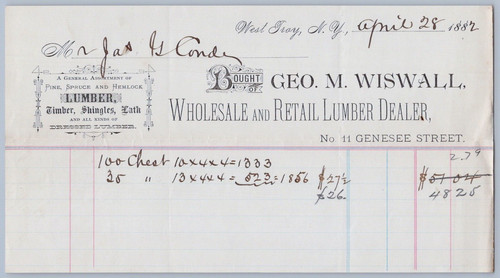 West Troy, N.Y., April 28 1882
Mr Jas G Conde
A General Assortment of
Pine, Spruce and Hemlock
LUMBER,
Timber, Shingles, Lath
AND ALL KINDS OF
DRESSED LUMBER.
BOUGHT OF GEO. M. WISWALL,
WHOLESALE AND RETAIL LUMBER DEALER,
No. 11 GENESEE STREET.
2.79
100 Chest 10x4x4=1333
30 " 13x4x4= 523=1856 $27½ $51 04
$26. 48 25